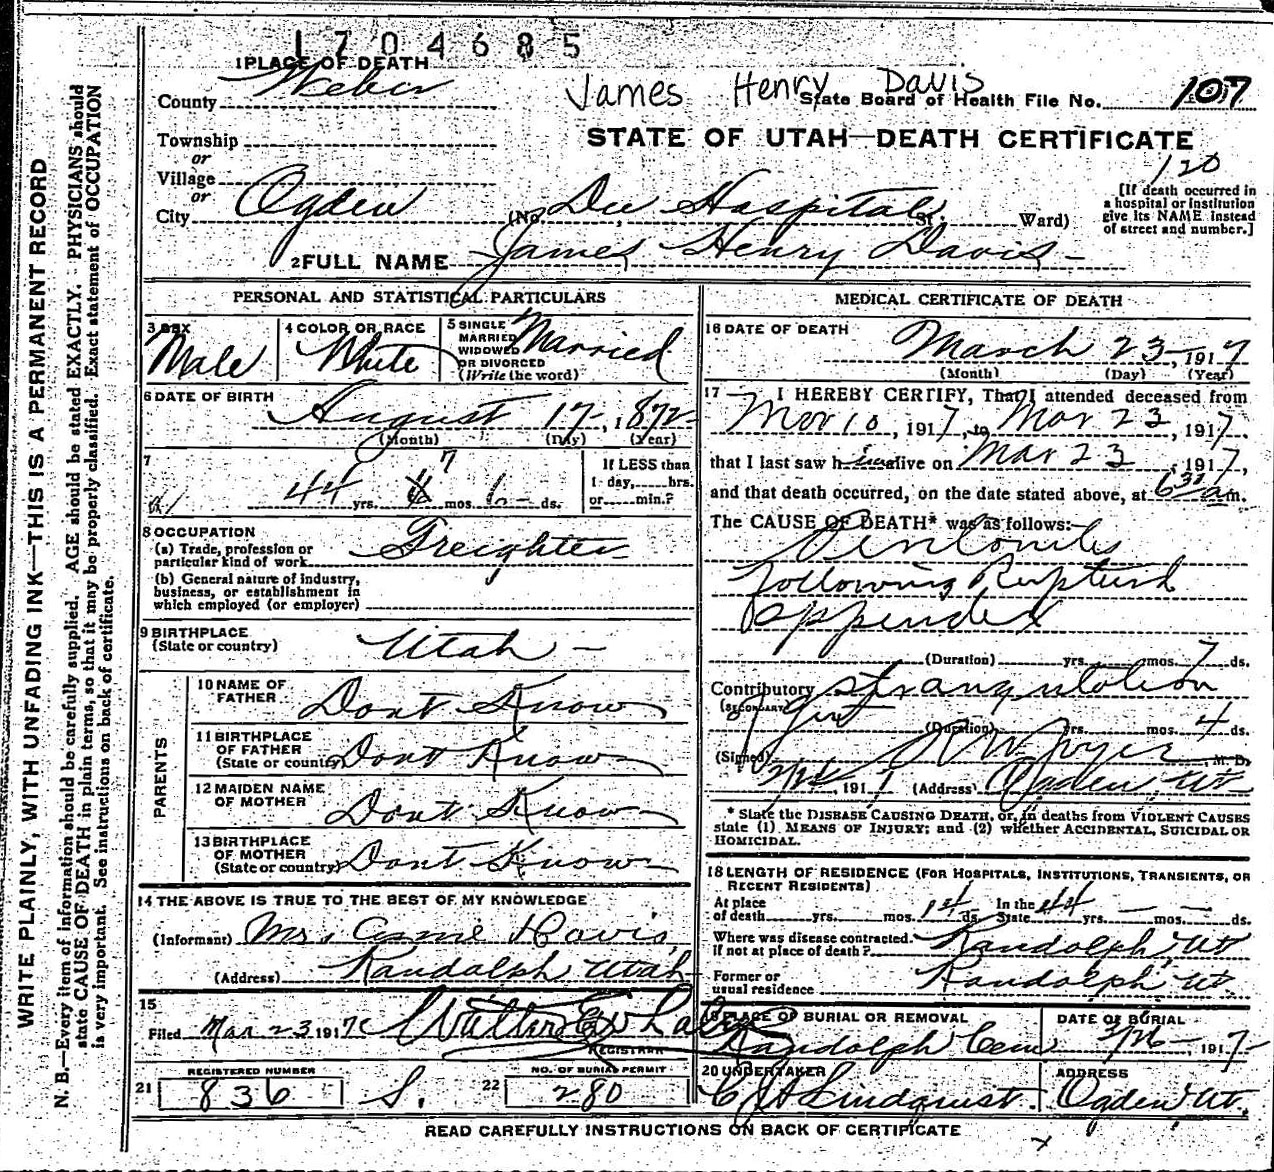 1704685
1 PLACE OF DEATH
County Weber
James Henry Davis
State Board of Health File No. 107
Township
or
Village
or
City Ogden (No. Dee Hospital St; Ward)
STATE OF UTAH—DEATH CERTIFICATE
120
[If death occurred in
a hospital or institution
give its NAME instead
of street and number.]
2 FULL NAME James Henry Davis
PERSONAL AND STATISTICAL PARTICULARS
3 SEX
Male
4 COLOR OR RACE
White
5 SINGLE
MARRIED
WIDOWED
OR DIVORCED
(Write the word)
Married
6 DATE OF BIRTH
August 17, 1872
(Month) (Day) (Year)
7
44 yrs. 7 mos. 6 ds.
If LESS than
1 day, hrs.
or min.?
8 OCCUPATION
(a) Trade, profession or
particular kind of work Freighter
(b) General nature of industry,
business, or establishment in
which employed (or employer)
9 BIRTHPLACE
(State or country) Utah
PARENTS
10 NAME OF
FATHER Dont Know
11 BIRTHPLACE
OF FATHER
(State or country) Dont Know
12 MAIDEN NAME
OF MOTHER Dont Know
13 BIRTHPLACE
OF MOTHER
(State or country) Dont Know
14 THE ABOVE IS TRUE TO THE BEST OF MY KNOWLEDGE
(Informant) Mrs. Davis
(Address) Randolph Utah
15
Filed Mar 23 1917
REGISTRAR
REGISTERED NUMBER
21 836 S.
NO. OF BURIAL PERMIT
22 280
MEDICAL CERTIFICATE OF DEATH
16 DATE OF DEATH
March 23, 1917
(Month) (Day) (Year)
17 I HEREBY CERTIFY, That I attended deceased from
Mar 10, 1917, to Mar 23, 1917.
that I last saw him alive on Mar 23, 1917,
and that death occurred, on the date stated above, at 6 30 am.
The CAUSE OF DEATH* was as follows:
Peritonitis
following Rupturd
appendex
(Duration) yrs. mos. 7 ds.
Contributory strangulation
(SECONDARY) gut
(Duration) yrs. mos. 4 ds.
(Signed) M. D.
191 7 (Address) Ogden Ut
* State the DISEASE CAUSING DEATH, or, in deaths from VIOLENT CAUSES
state (1) MEANS OF INJURY; and (2) whether ACCIDENTAL, SUICIDAL OR
HOMICIDAL.
18 LENGTH OF RESIDENCE (FOR HOSPITALS, INSTITUTIONS, TRANSIENTS, OR
RECENT RESIDENTS)
At place
of death yrs. mos. 14 ds. In the State 44 yrs. — mos. — ds.
Where was disease contracted.
if not at place of death? Randolph, Ut
Former or
usual residence Randolph Ut.
19 PLACE OF BURIAL OR REMOVAL
Randolph Cem
DATE OF BURIAL
3/26, 1917
20 UNDERTAKER
Lindquist.
ADDRESS
Ogden, Ut.
READ CAREFULLY INSTRUCTIONS ON BACK OF CERTIFICATE
WRITE PLAINLY, WITH UNFADING INK—THIS IS A PERMANENT RECORD
N. B.—Every item of information should be carefully supplied. AGE should be stated EXACTLY. PHYSICIANS should
state CAUSE OF DEATH in plain terms, so that it may be properly classified. Exact statement of OCCUPATION
is very important. See instructions on back of certificate.